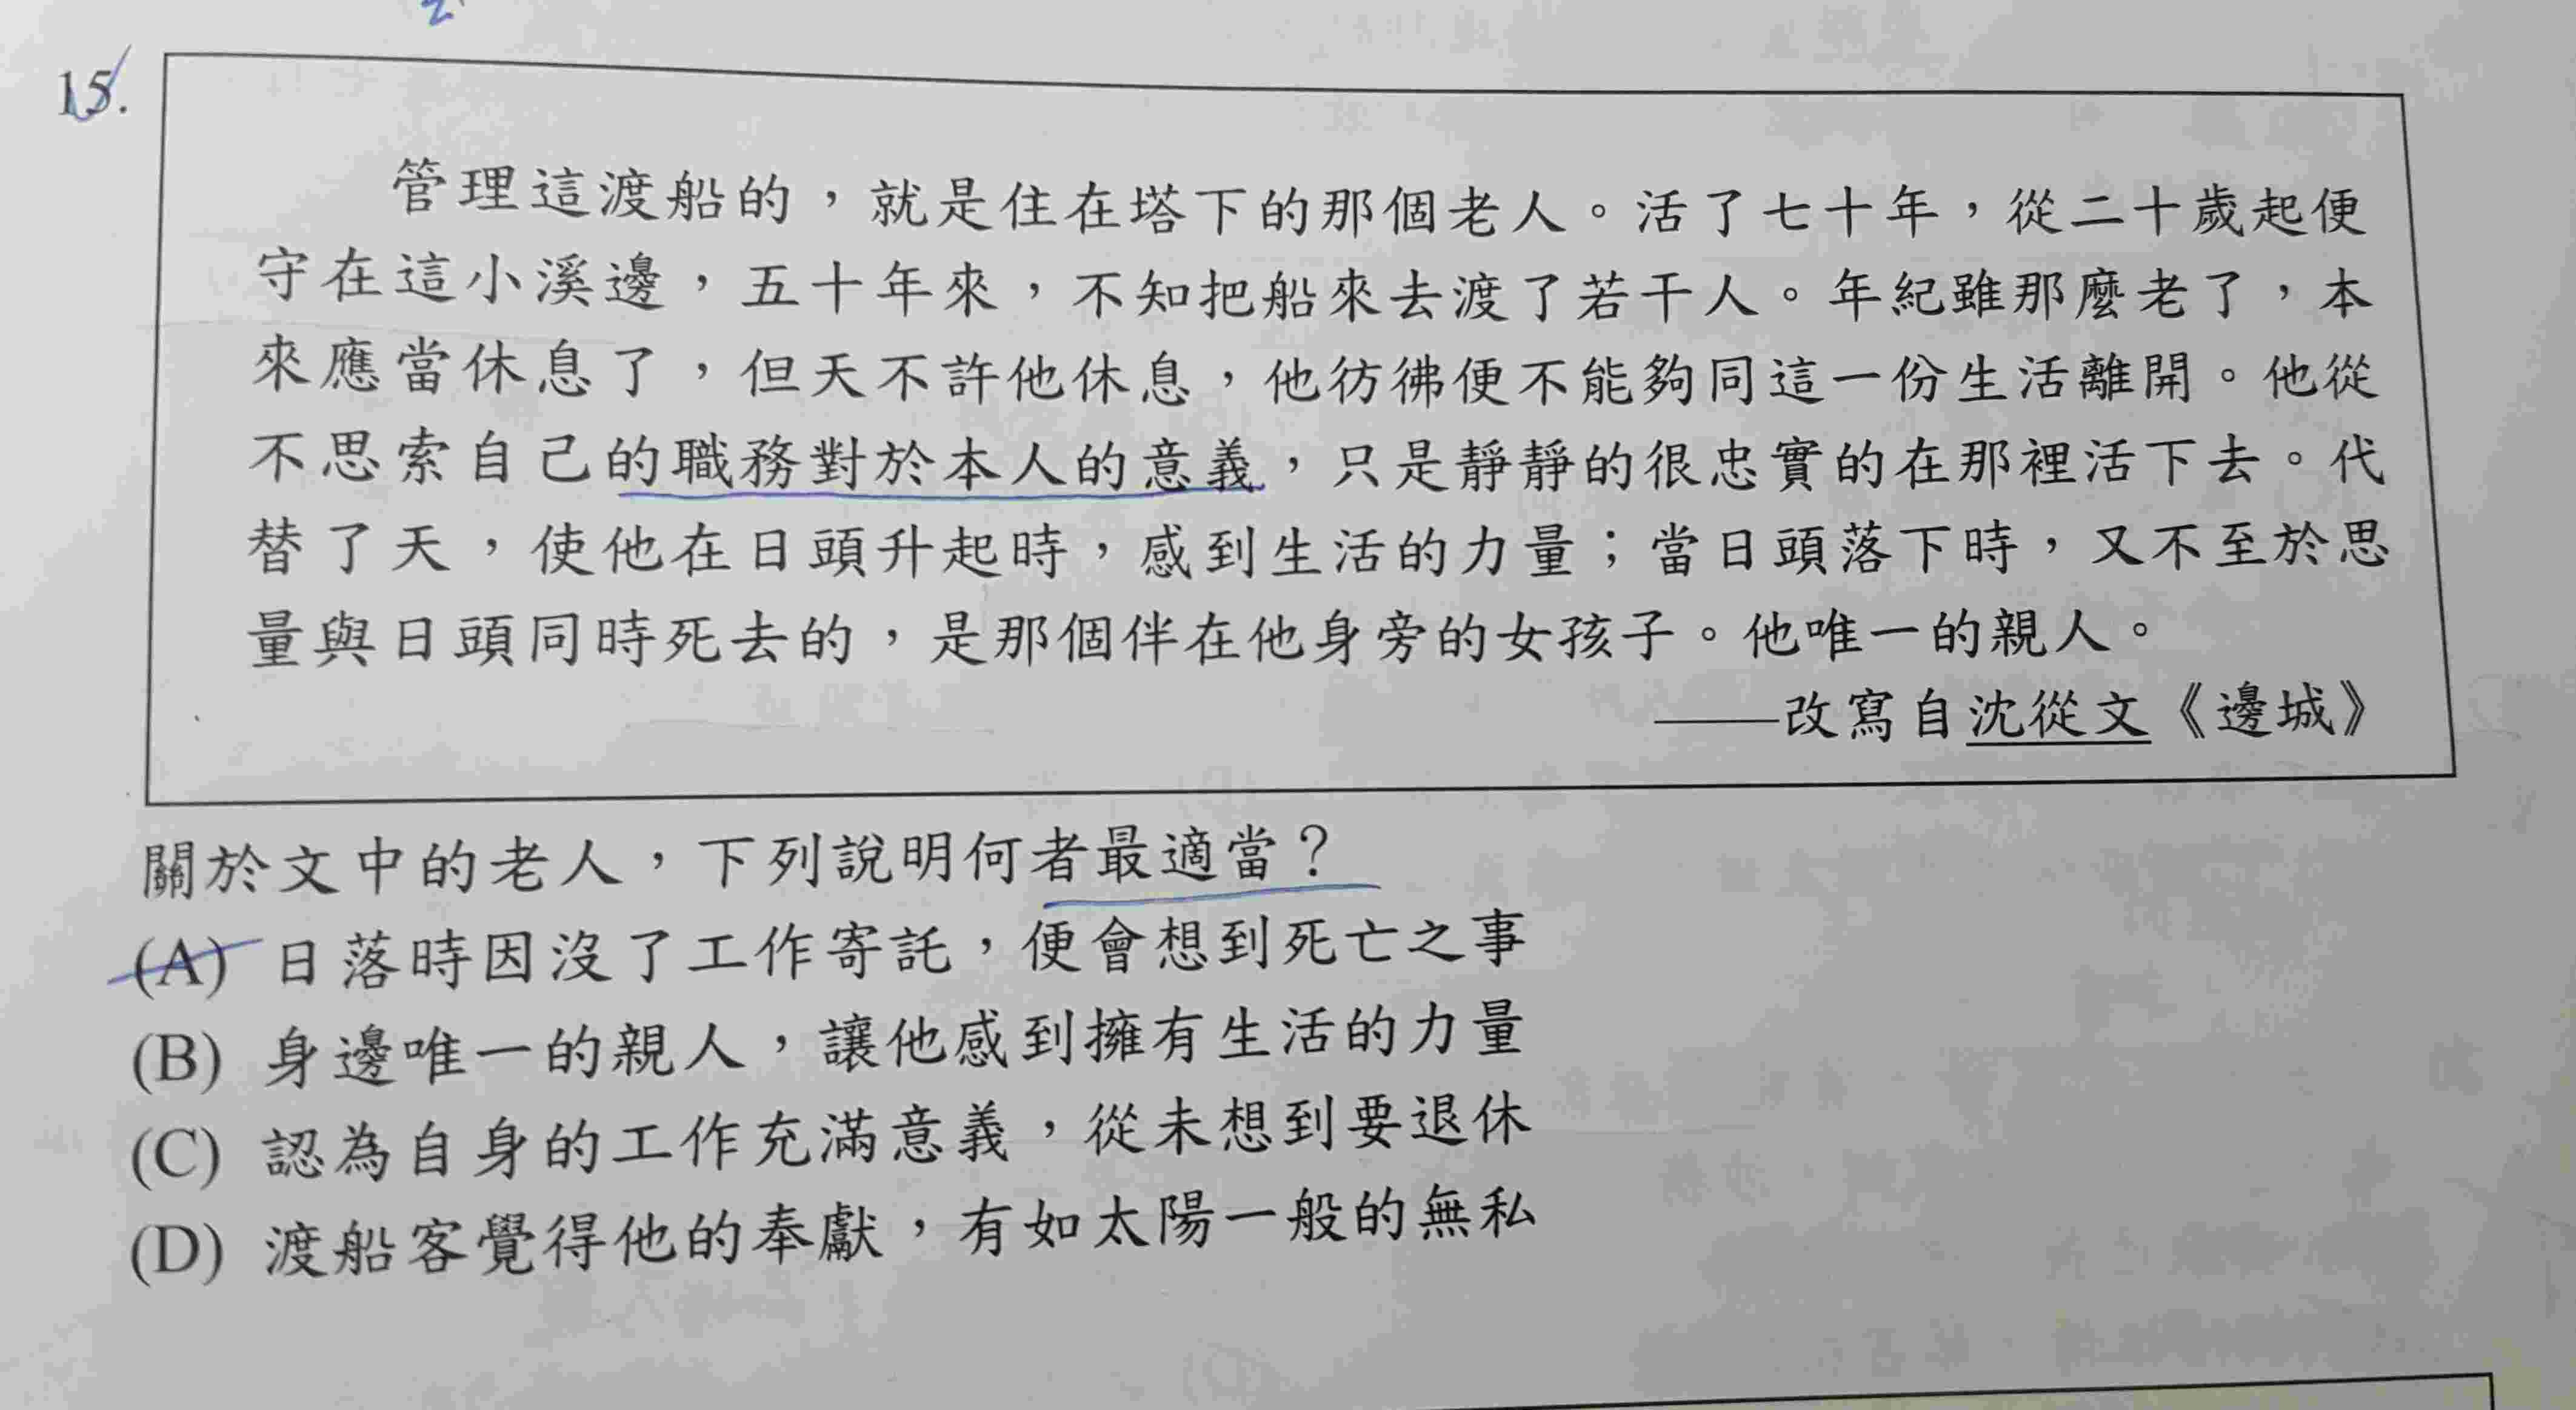 15.
管理這渡船的，就是住在塔下的那個老人。活了七十年，從二十歲起便
守在這小溪邊，五十年來，不知把船來去渡了若干人。年紀雖那麼老了，本
來應當休息了，但天不許他休息，他彷彿便不能夠同這一份生活離開。他從
不思索自己的職務對於本人的意義，只是靜靜的很忠實的在那裡活下去。代
替了天，使他在日頭升起時，感到生活的力量；當日頭落下時，又不至於思
量與日頭同時死去的，是那個伴在他身旁的女孩子。他唯一的親人。
——改寫自沈從文《邊城》
關於文中的老人，下列說明何者最適當？
(A) 日落時因沒了工作寄託，便會想到死亡之事
(B) 身邊唯一的親人，讓他感到擁有生活的力量
(C) 認為自身的工作充滿意義，從未想到要退休
(D) 渡船客覺得他的奉獻，有如太陽一般的無私